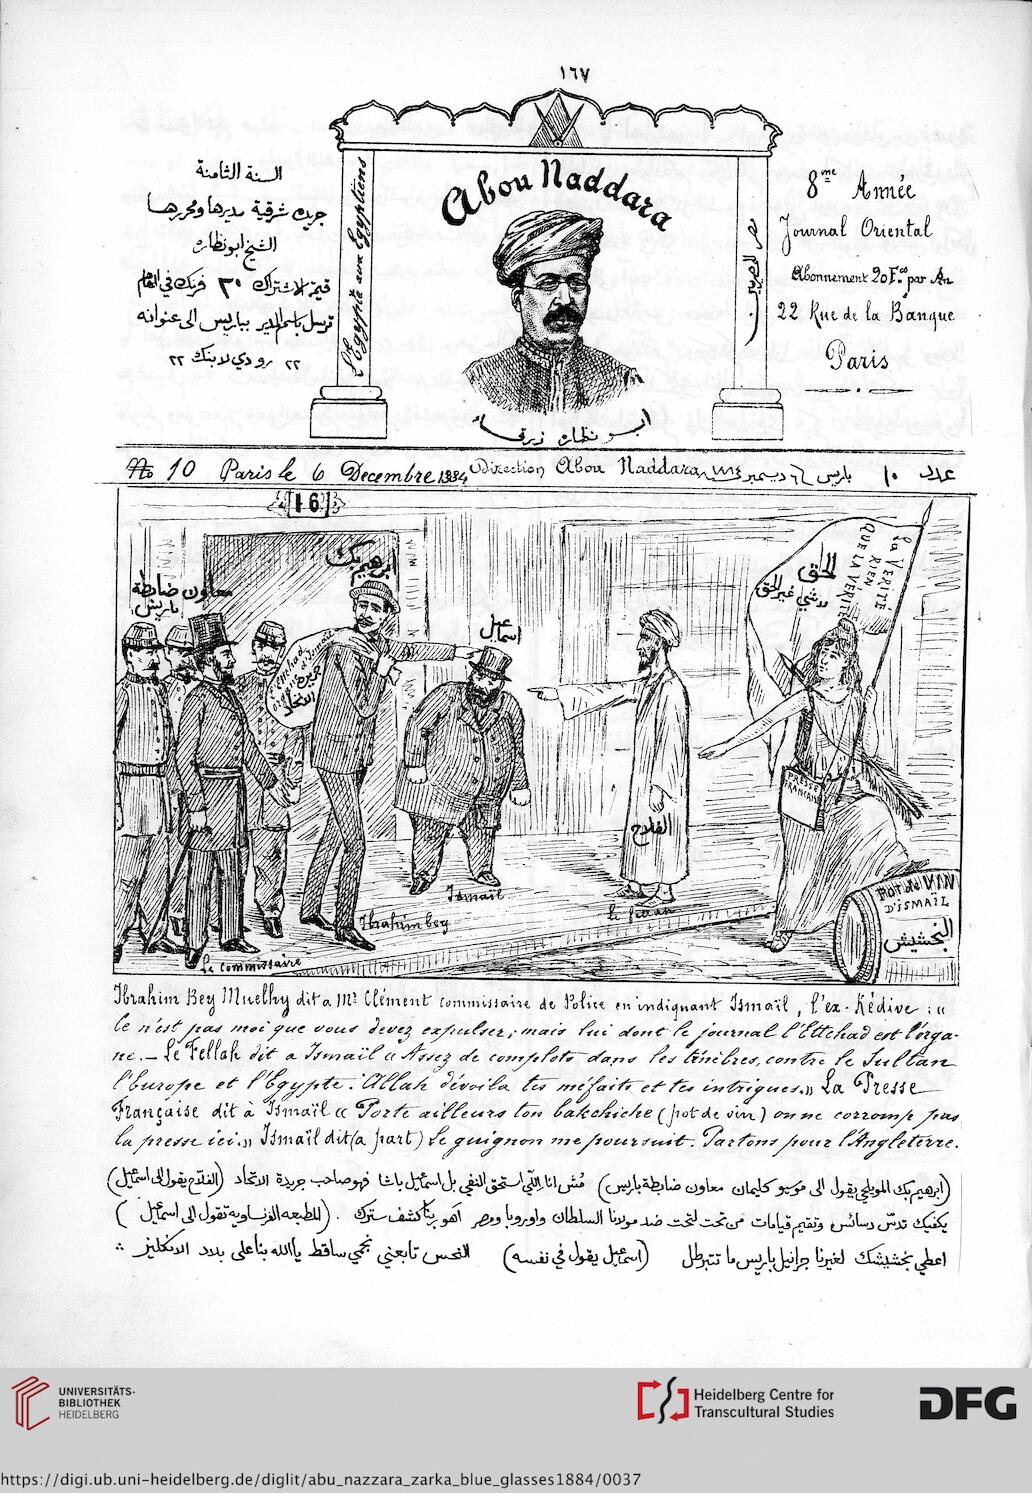 ١٦٧
السنة الثامنة
جريدة شرقية مديرها ومحررها
الشيخ ابو نظاره
قيمة الاشتراك ٢٠ فرنك في العام
ترسل باسم المدير بباريس الى عنوانه
٢٢ رو دي لا بنك ٢٢
L'Egypte aux Egyptiens
Abou Naddara
مصر للمصريين
ابو نظاره زرقاء
8me Année
Journal Oriental
Abonnement 20 Fcs par An
22 Rue de la Banque
Paris
No 10 Paris le 6 Decembre 1884 Direction Abou Naddara باريس ٦ ديسمبر سنة ١٨٨٤ عدد ١٠
16
معاون ضابطة
باريس
ابرهيم بك
Ettehad
جريدة
الاتحاد
اسماعيل
الفلاح
الحق
لا شي غير الحق
La VERITÉ
RIEN
QUE LA VERITÉ
PRESSE
FRANÇAISE
POT de VIN
D'ISMAÏL
البخشيش
Ismail
Ibrahim bey
Le commissaire
Ibrahim Bey Muelhy dit a Mr Clément commissaire de Police en indiquant Ismaïl, l'ex-Kédive : "
Ce n'est pas moi que vous devez expulser; mais lui dont le journal l'Ettehad est l'orga-
ne. — Le Fellah dit a Ismaïl " Assez de complots dans les ténèbres, contre le Sultan
l'Europe et l'Egypte. Allah dévoila tes méfaits et tes intrigues." La Presse
Française dit à Ismaïl " Porte ailleurs ton bakchiche (pot de vin) on ne corromp pas
la presse ici." Ismaïl dit (a part) Le guignon me poursuit. Partons pour l'Angleterre.
(ابرهيم بك المويلحي يقول الى موسيو كليمان معاون ضابطة باريس) مُش انا اللّي استحق النفي بل اسماعيل باشا فهو صاحب جريدة الاتحاد (الفلاح يقول الى اسمٰعيل)
يكفيك تدسّ دسائس وتقيم قيامات من تحت لتحت ضد مولانا السلطان واوروبا ومصر اهو ربّنا كشف سترك . (المطبعه الفرنساويه تقول الى اسمٰعيل)
اعطي بخشيشك لغيرنا جرانيل باريس ما تتبرطل (اسمٰعيل يقول في نفسه) النحس تابعني نجمي ساقط يا الله بنا على بلاد الانكليز
UNIVERSITÄTS-
BIBLIOTHEK
HEIDELBERG
Heidelberg Centre for
Transcultural Studies
DFG
https://digi.ub.uni-heidelberg.de/diglit/abu_nazzara_zarka_blue_glasses1884/0037